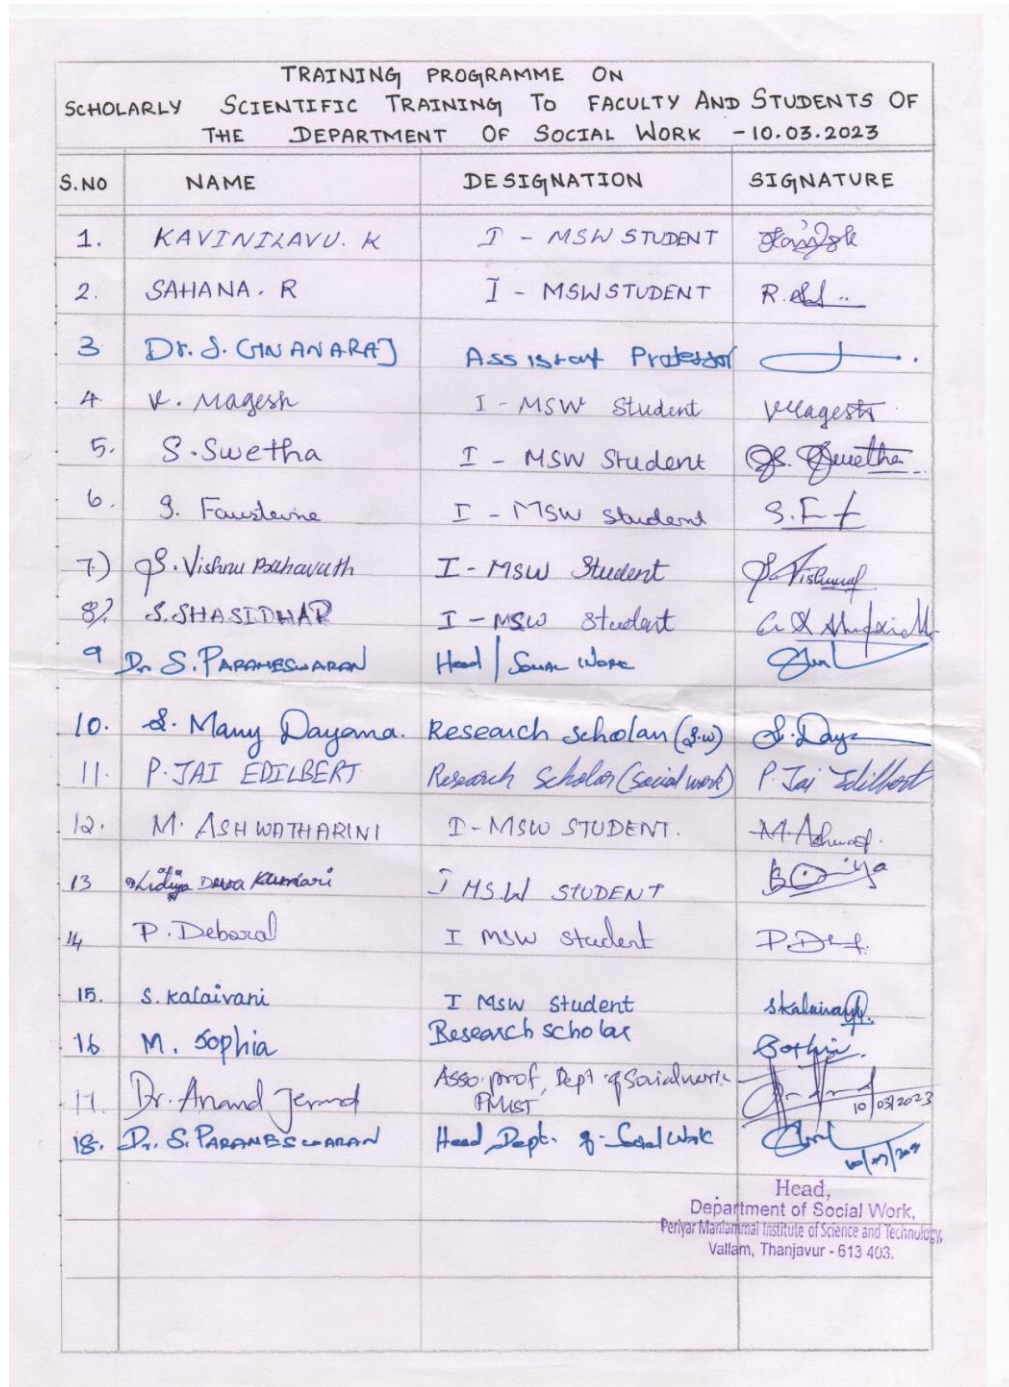 TRAINING PROGRAMME ON
SCHOLARLY SCIENTIFIC TRAINING TO FACULTY AND STUDENTS OF
THE DEPARTMENT OF SOCIAL WORK - 10.03.2023
S.NO NAME DESIGNATION SIGNATURE
1. KAVINILAVU. K I - MSW STUDENT
2. SAHANA. R I - MSW STUDENT R.
3 Dr. S. GNANARAJ Assistant Professor
4 V. Magesh I - MSW Student VMagesh
5. S. Swetha I - MSW Student S. Swetha
6. S. Fausteine I - MSW Student S.F
7) S. Vishnu I - MSW Student S. Vishnu
8) S. SHASIDHAR I - MSW Student
9 Dr S. PARAMESWARAN Head / Social Work
10. S. Mary Dayana. Research Scholar (S.W) S. Daya
11. P. JAI EDILBERT Research Scholar (Social work) P Jai Edilbert
12. M. ASHWATHARINI I - MSW STUDENT. M. Ashwa
13 Lidiya Deva Kumari I MSW STUDENT
14 P. Deboral I MSW Student P. De
15. S. Kalaivani I MSW Student S Kalaivani
16 M. Sophia Research Scholar Sophia
17. Dr. Anand Jerard Asso. prof, Dept of Social work PMIST 10/03/2023
18. Dr. S. PARAMESWARAN Head Dept. of Social Work
Head,
Department of Social Work,
Periyar Maniammai Institute of Science and Technology,
Vallam, Thanjavur - 613 403.